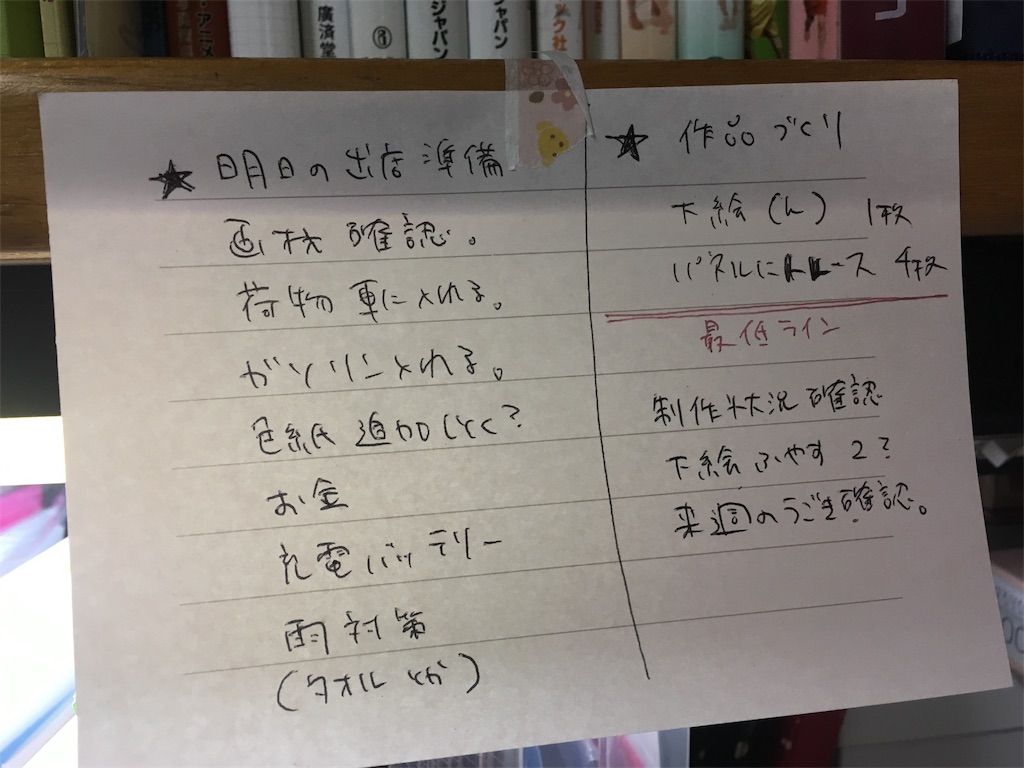 ・アニメ
廣済堂
ジャパン
ジャパン
ンク社
★ 明日の出店準備
画材確認。
荷物車に入れる。
ガソリン入れる。
色紙追加しとく?
お金
充電バッテリー
雨対策
(タオルとか)
★ 作品づくり
下絵(ん) 1枚
パネルにトレース 4枚
最低ライン
制作状況確認
下絵ふやす 2?
来週のうごき確認。